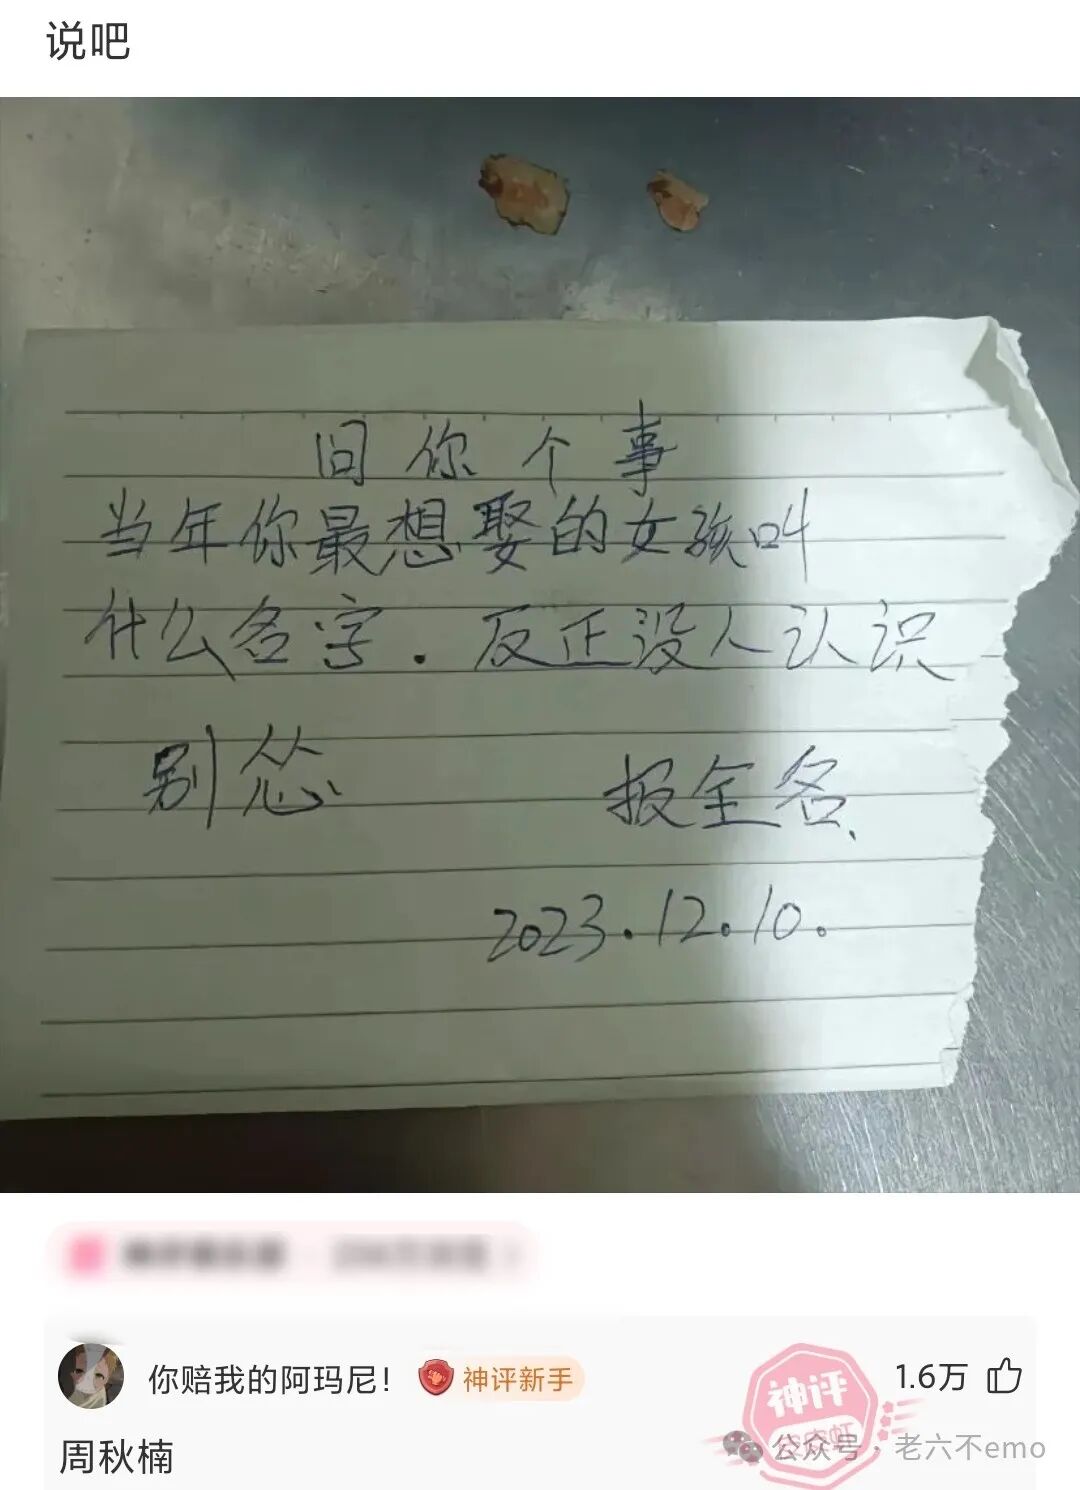 说吧
问你个事
当年你最想娶的女孩叫
什么名字.反正没人认识
别怂 报全名.
2023.12.10.
你赔我的阿玛尼！ 神评新手 1.6万
神评
周秋楠
公众号·老六不emo